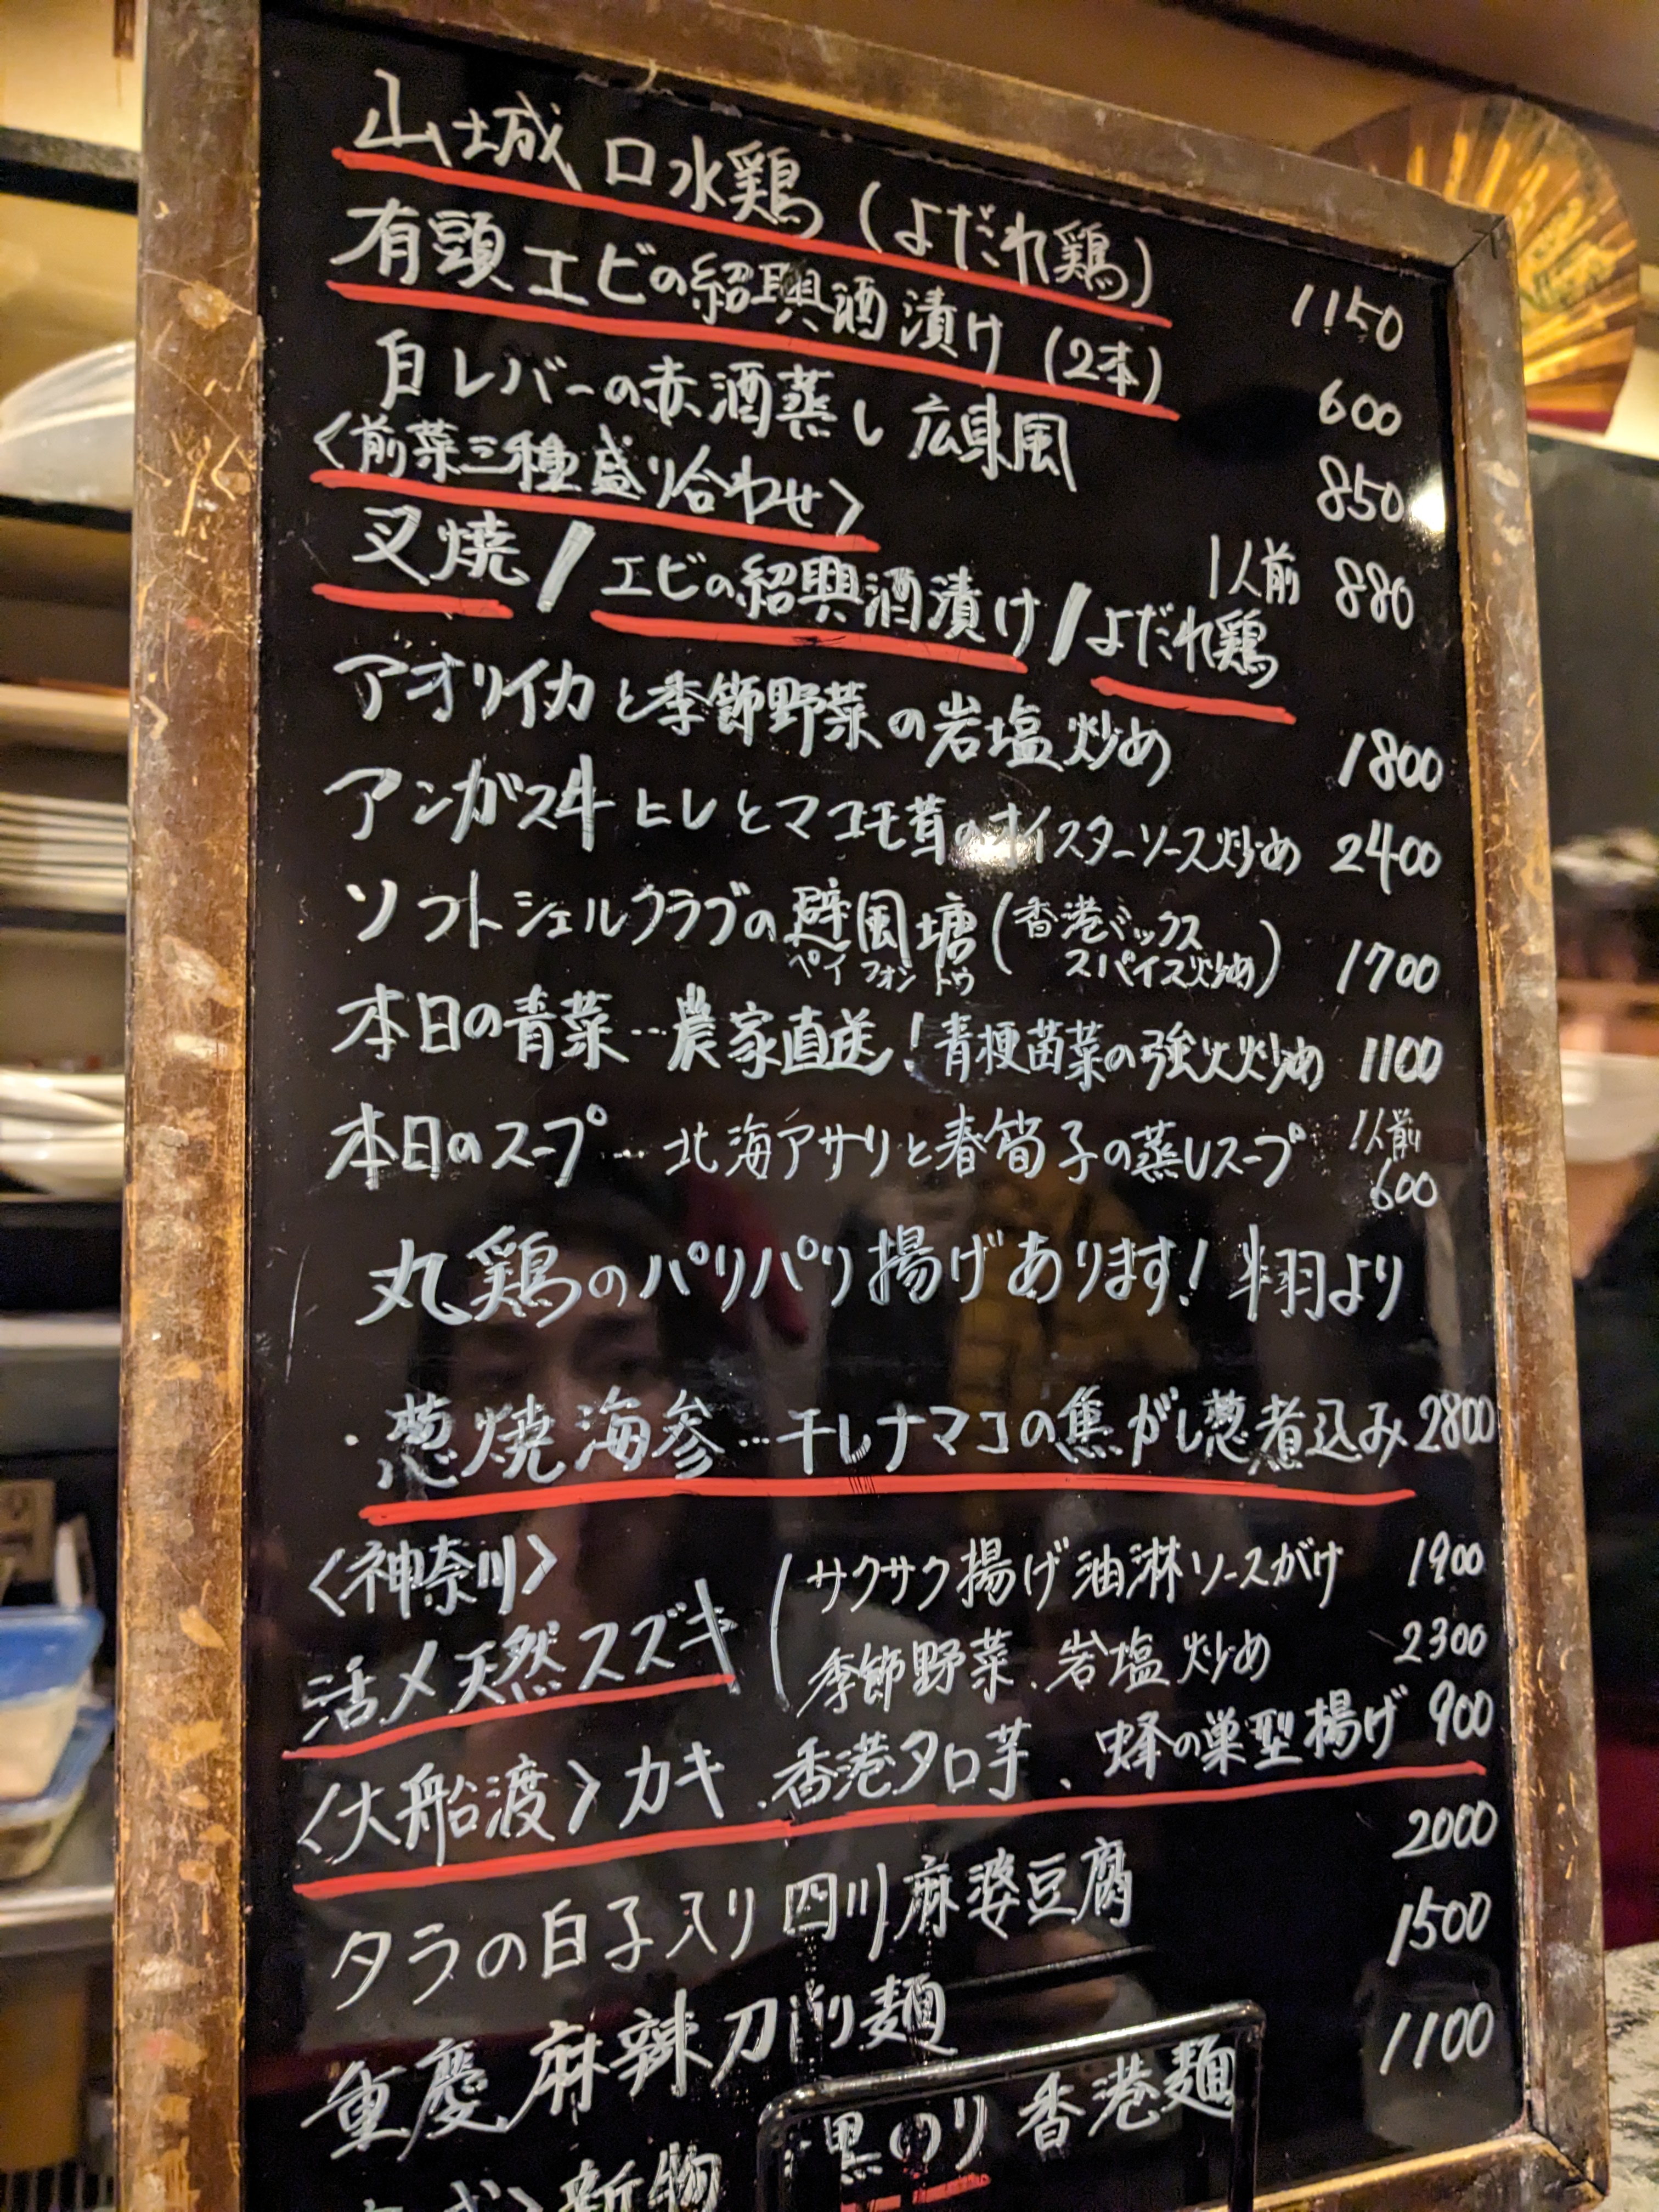 山城 口水鶏 (よだれ鶏) 1150
有頭エビの紹興酒漬け (2本) 600
白レバーの赤酒蒸し 広東風 850
〈前菜三種盛り合わせ〉 1人前 880
叉焼/エビの紹興酒漬け/よだれ鶏
アオリイカと季節野菜の岩塩炒め 1800
アンガス牛ヒレとマコモ茸のオイスターソース炒め 2400
ソフトシェルクラブの避風塘(香港ミックススパイス炒め) 1700
ペイ フォン トウ
本日の青菜…農家直送!青梗苗菜の強火炒め 1100
本日のスープ…北海アサリと春筍子の蒸しスープ 1人前 600
丸鶏のパリパリ揚げあります! 半羽より
・葱焼海参…干しナマコの焦がし葱煮込み 2800
〈神奈川〉
活〆天然スズキ
サクサク揚げ油淋ソースがけ 1900
季節野菜、岩塩炒め 2300
〈大船渡〉カキ、香港タロ芋、蜂の巣型揚げ 900
タラの白子入り四川麻婆豆腐 2000
重慶麻辣刀削麺 1500
新物 黒のり香港麺 1100